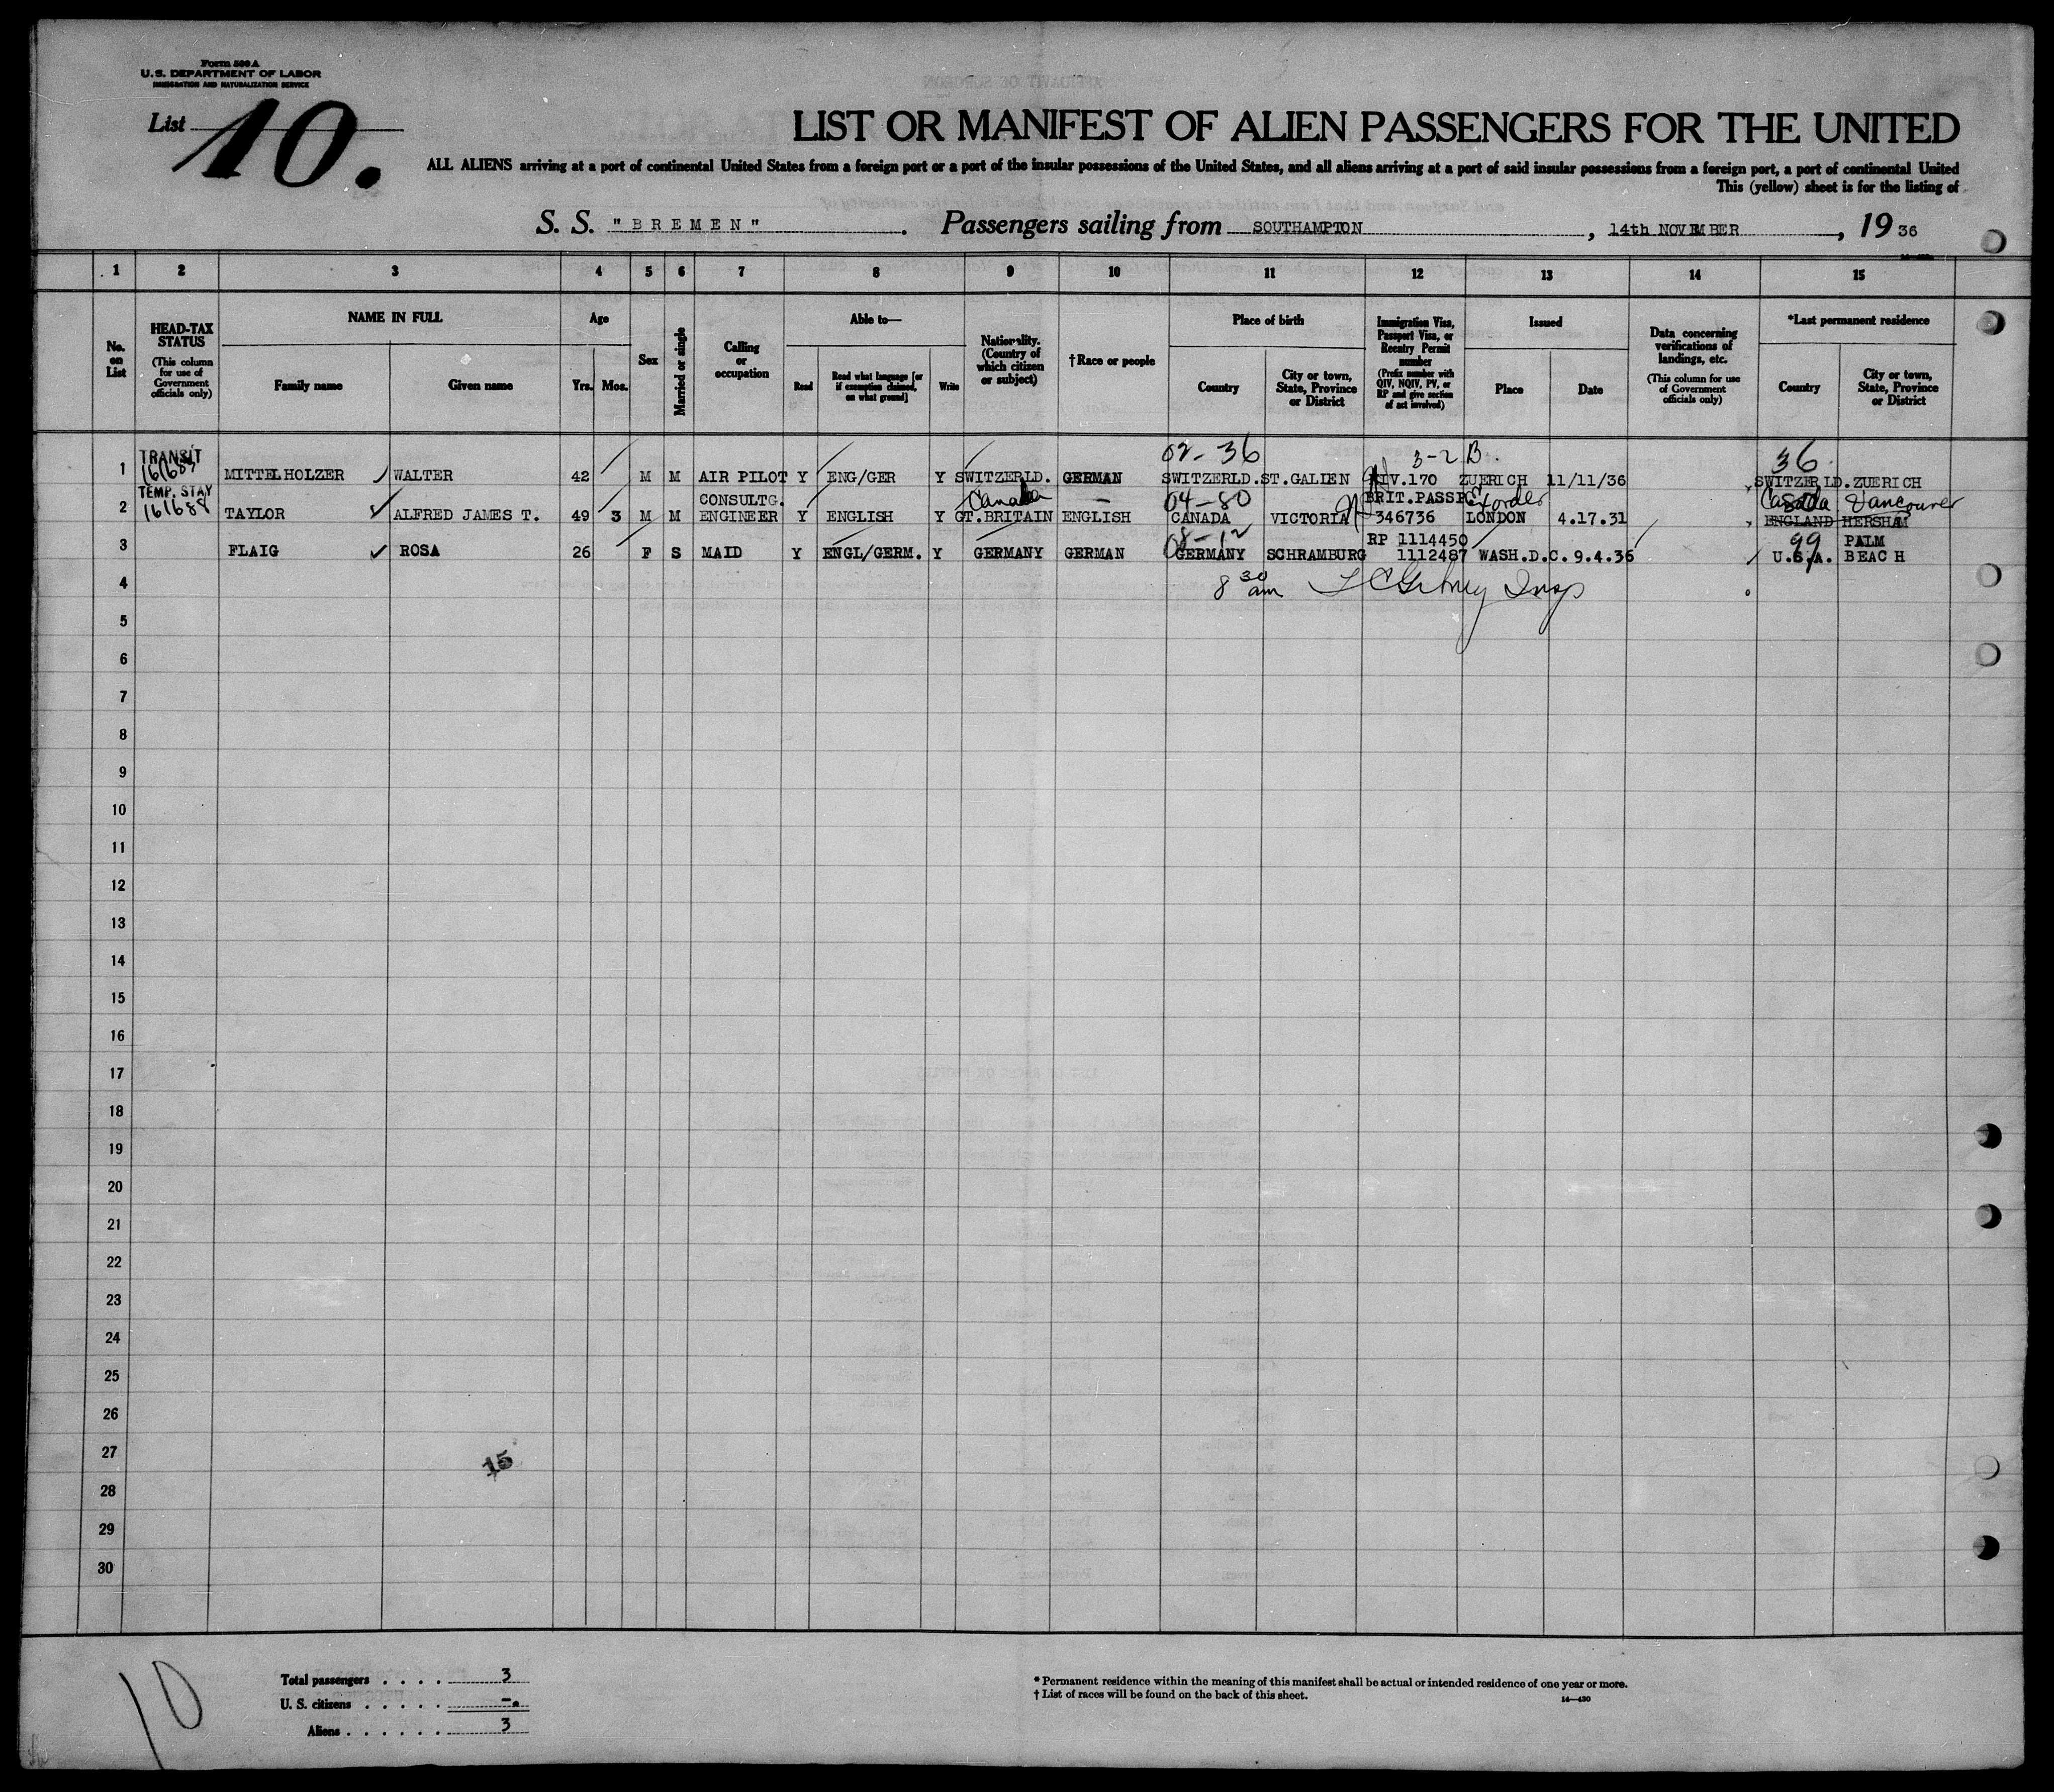 Form 500 A
U. S. DEPARTMENT OF LABOR
IMMIGRATION AND NATURALIZATION SERVICE
List 10.
LIST OR MANIFEST OF ALIEN PASSENGERS FOR THE UNITED
ALL ALIENS arriving at a port of continental United States from a foreign port or a port of the insular possessions of the United States, and all aliens arriving at a port of said insular possessions from a foreign port, a port of continental United
This (yellow) sheet is for the listing of
S. S. "BREMEN". Passengers sailing from SOUTHAMPTON, 14th NOVEMBER, 1936
1 2 3 4 5 6 7 8 9 10 11 12 13 14 15
No. on List
HEAD-TAX STATUS (This column for use of Government officials only)
NAME IN FULL Family name Given name
Age Yrs. Mos.
Sex
Married or single
Calling or occupation
Able to— Read Read what language [or if exemption claimed, on what ground] Write
Nationality. (Country of which citizen or subject)
†Race or people
Place of birth Country City or town, State, Province or District
Immigration Visa, Passport Visa, or Reentry Permit number (Prefix number with QIV, NQIV, PV, or RP and give section of act involved)
Issued Place Date
Data concerning verifications of landings, etc. (This column for use of Government officials only)
*Last permanent residence Country City or town, State, Province or District
02-36 3-2 B. 36
1 TRANSIT 161687 MITTELHOLZER WALTER 42 M M AIR PILOT Y ENG/GER Y SWITZERLD. GERMAN SWITZERLD. ST.GALLEN IV.170 ZUERICH 11/11/36 SWITZERLD. ZUERICH
TEMP. STAY CONSULTG. Canada 04-80 BRIT.PASSPO Canada Vancouver
2 161688 TAYLOR ALFRED JAMES T. 49 3 M M ENGINEER Y ENGLISH Y GT.BRITAIN ENGLISH CANADA VICTORIA 346736 LONDON 4.17.31 ENGLAND HERSHAM
08-12 RP 1114450 99 PALM
3 FLAIG ROSA 26 F S MAID Y ENGL/GERM. Y GERMANY GERMAN GERMANY SCHRAMBURG 1112487 WASH.D.C. 9.4.36 U.S.A. BEACH
4 8 30 am Insp
5
6
7
8
9
10
11
12
13
14
15
16
17
18
19
20
21
22
23
24
25
26
27
15
28
29
30
10
Total passengers . . . . 3
U. S. citizens . . . . . -.
Aliens . . . . . . 3
* Permanent residence within the meaning of this manifest shall be actual or intended residence of one year or more.
† List of races will be found on the back of this sheet. 14—430